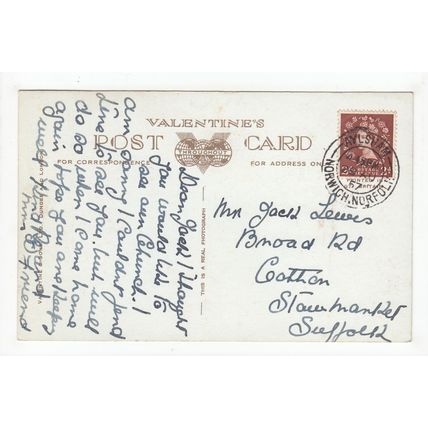 VALENTINE'S
POST CARD
FOR CORRESPONDENCE
FOR ADDRESS ONLY
THROUGHOUT
THIS IS A REAL PHOTOGRAPH
Dear Jack I thought
you would like to
see our Church. I
am sorry I couldn't find
time to see you. but will
do so when I come home
again hope you are keeping
Friend
Mr Jack Lewis
Broad Rd
Cotton
Stowmarket
Suffolk
AYLSHAM
NORWICH, NORFOLK